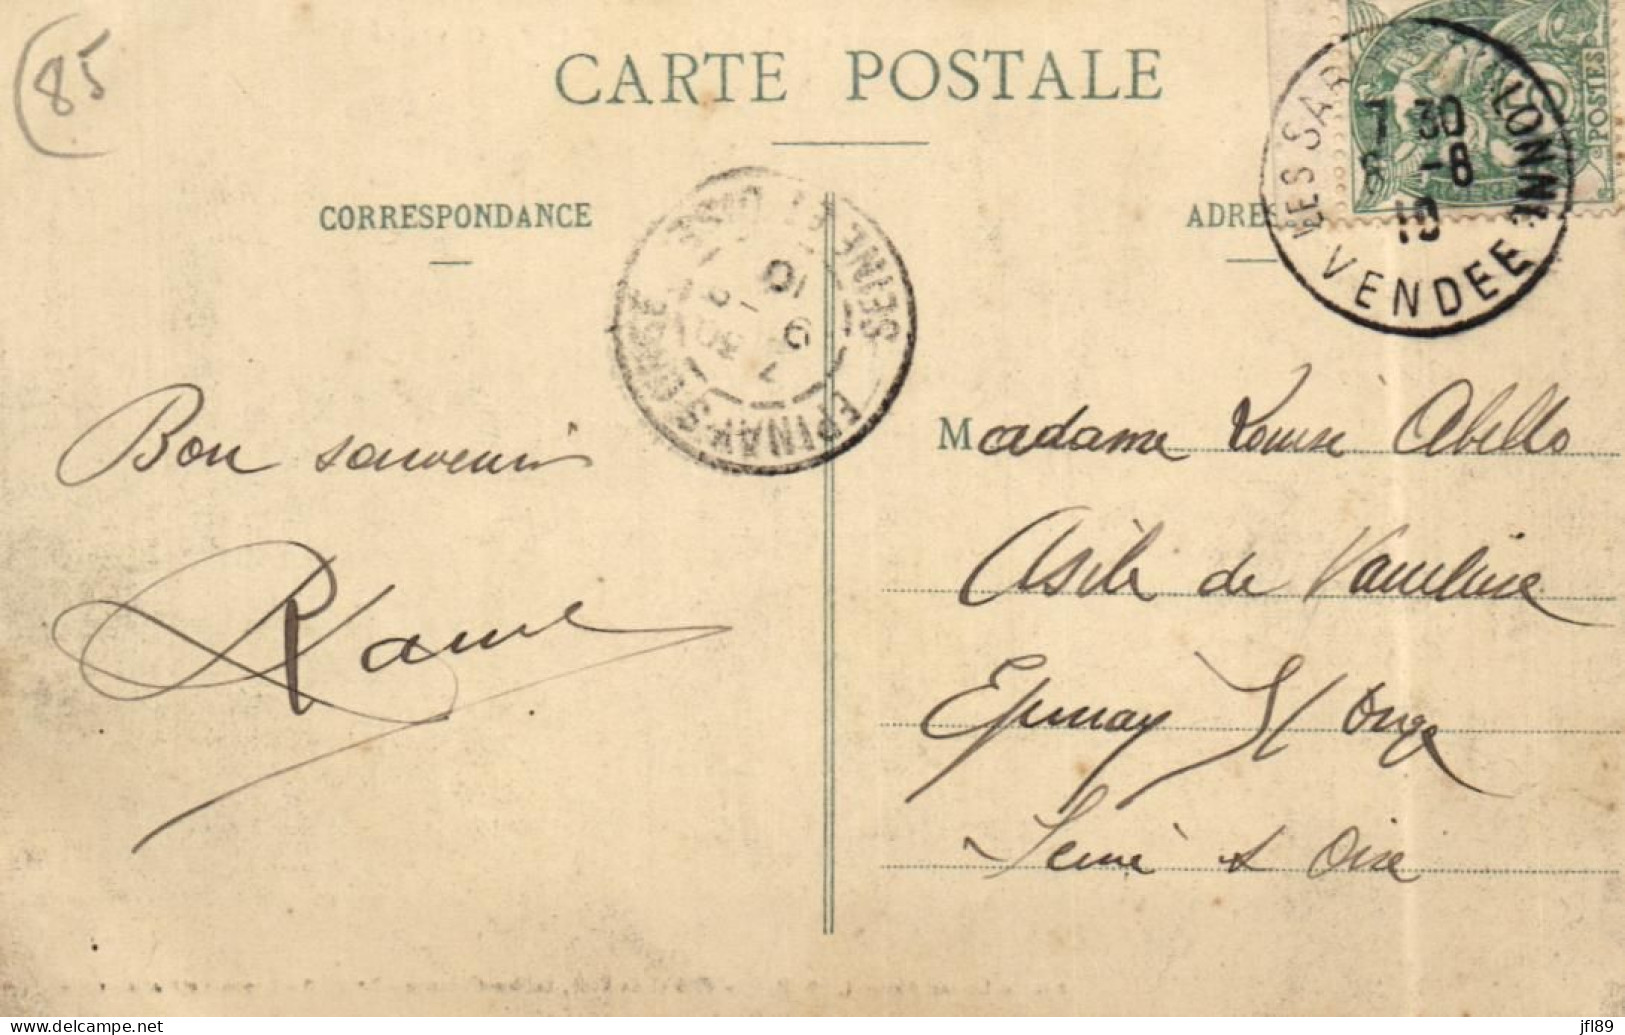 85
CARTE POSTALE
POSTES
LES SAB LONNE
7 30
8 -8
10
VENDEE
CORRESPONDANCE
ADRES
EPINAY-S-ORGE
SEINE ET OISE
7 30
9 - 8
10
Bon souvenir
Madame Louise Abello
Asile de Vaucluse
Epinay S/ Orge
Seine & Oise
www.delcampe.net
jfl89